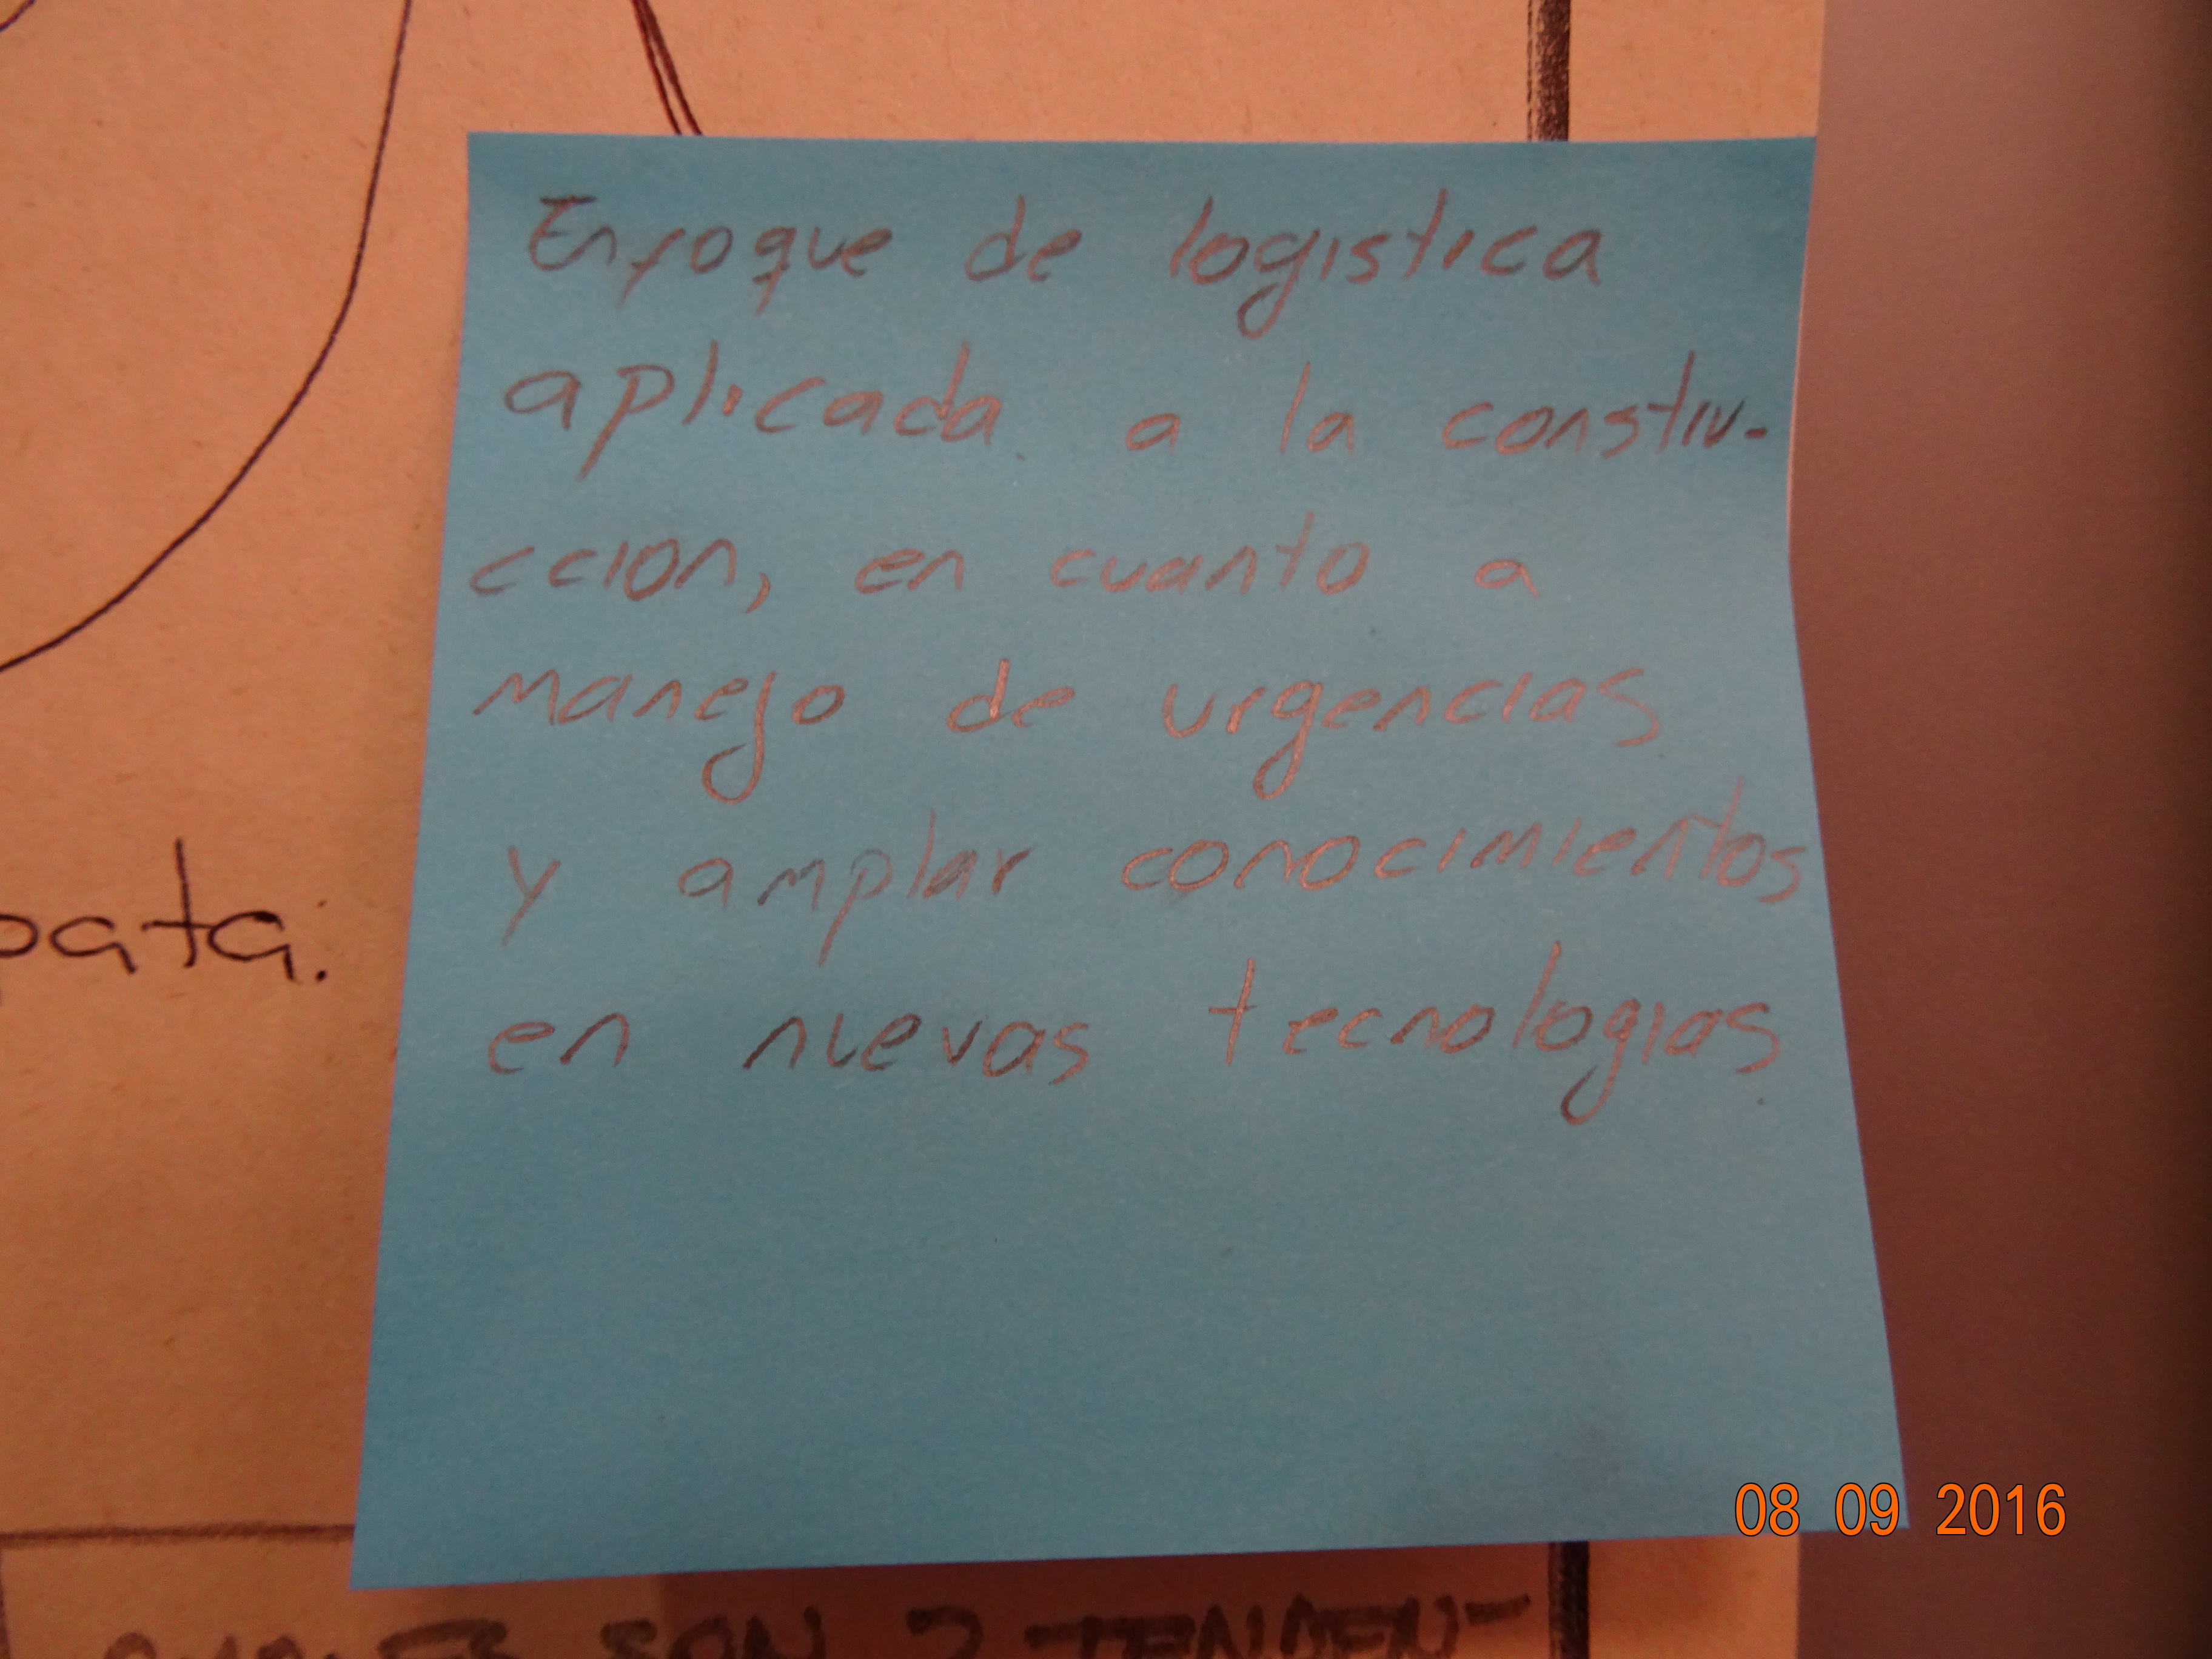 Enfoque de logistica
aplicada a la constru-
ccion, en cuanto a
manejo de urgencias
y amplar conocimientos
en nuevas tecnologias
pata.
SON 2 TENDEN-
08 09 2016